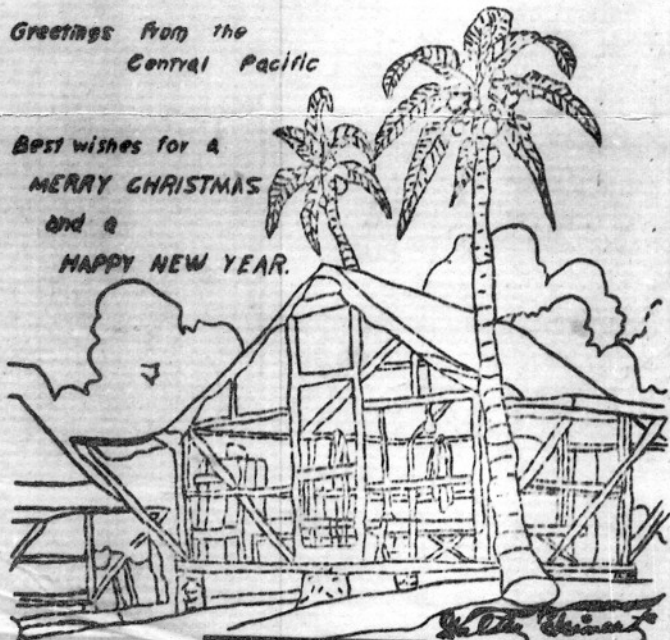 Greetings from the
Central Pacific
Best wishes for a
MERRY CHRISTMAS
and a
HAPPY NEW YEAR.
Walter